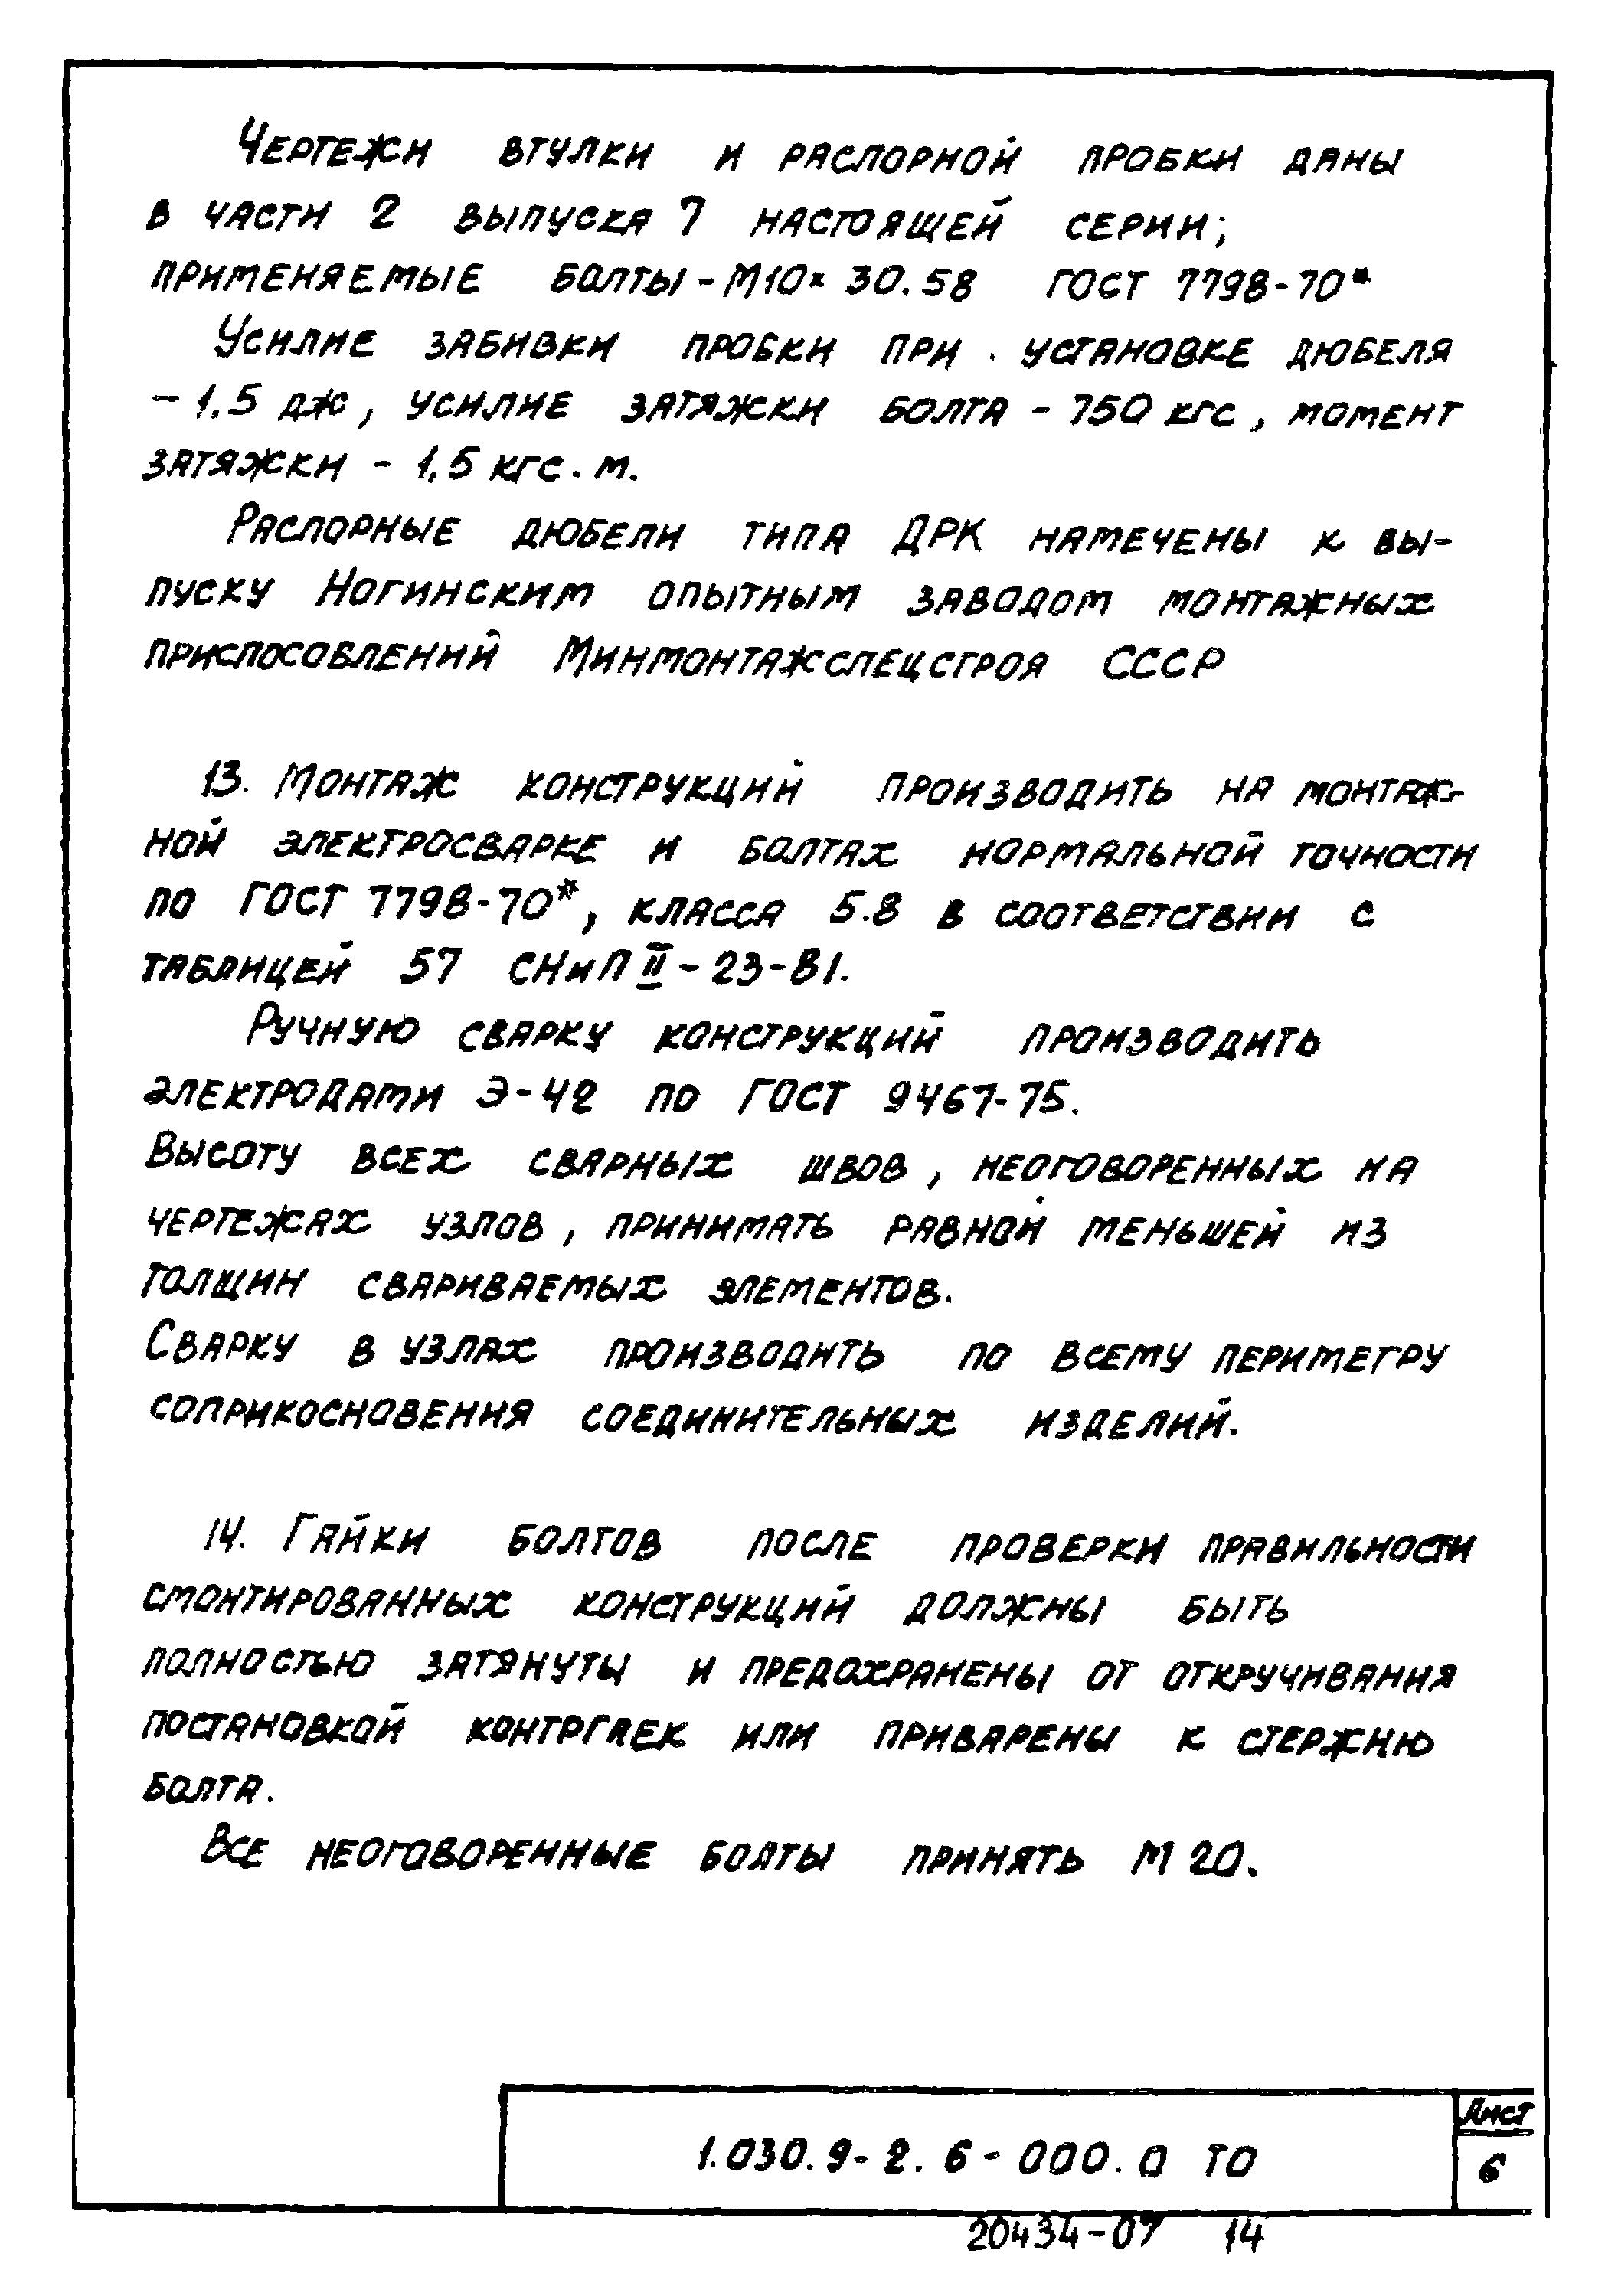 Чертежи втулки и распорной пробки даны
в части 2 выпуска 7 настоящей серии;
применяемые болты - М10× 30.58 ГОСТ 7798-70*
Усилие забивки пробки при установке дюбеля
- 1,5 дж, усилие затяжки болта - 750 кгс, момент
затяжки - 1,5 кгс.м.
Распорные дюбели типа ДРК намечены к вы-
пуску Ногинским опытным заводом монтажных
приспособлений Минмонтажспецстроя СССР
13. Монтаж конструкций производить на монтаж-
ной электросварке и болтах нормальной точности
по ГОСТ 7798-70*, класса 5.8 в соответствии с
таблицей 57 СНиП II-23-81.
Ручную сварку конструкций производить
электродами Э-42 по ГОСТ 9467-75.
Высоту всех сварных швов, неоговоренных на
чертежах узлов, принимать равной меньшей из
толщин свариваемых элементов.
Сварку в узлах производить по всему периметру
соприкосновения соединительных изделий.
14. Гайки болтов после проверки правильности
смонтированных конструкций должны быть
полностью затянуты и предохранены от откручивания
постановкой контргаек или приварены к стержню
болта.
Все неоговоренные болты принять М 20.
Лист
1.030.9-2.6-000.0 ТО
6
20434-07 14